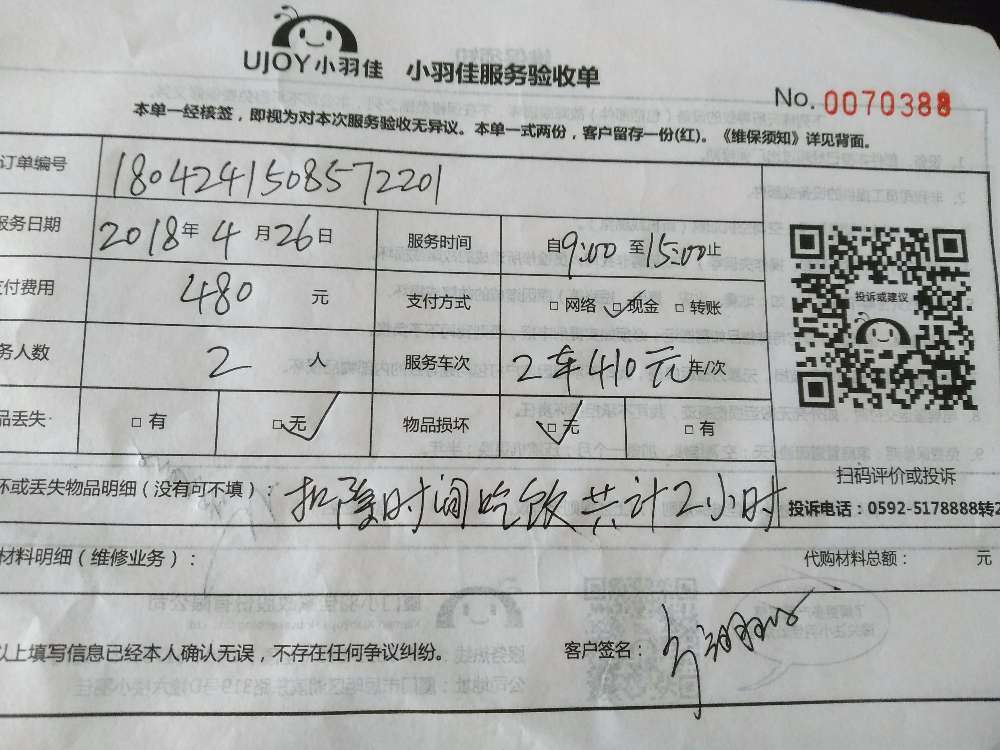 UJOY小羽佳 小羽佳服务验收单
No. 0070388
本单一经核签，即视为对本次服务验收无异议。本单一式两份，客户留存一份(红)。《维保须知》详见背面。
订单编号 1804241508572201
服务日期 2018年4月26日 服务时间 自9:00至15:00止
付费用 480 元 支付方式 □网络 ☑现金 □转账
务人数 2 人 服务车次 2车410元车/次
品丢失: □有 ☑无 物品损坏 ☑无 □有
投诉或建议
扫码评价或投诉
投诉电话：0592-5178888转2
坏或丢失物品明细（没有可不填）：扣除时间吃饭共计2小时
材料明细（维修业务）： 代购材料总额： 元
以上填写信息已经本人确认无误，不存在任何争议纠纷。 客户签名：